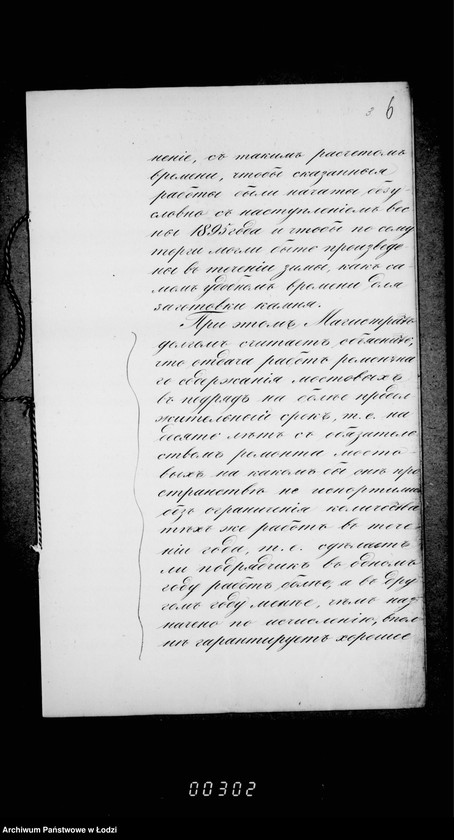 3 6
неніе, съ такимъ расчетомъ
времени, чтобы сказанныя
работы были начаты безу-
словно съ наступленіемъ вес
ны 1895 года и чтобы по сему
торги могли быть произведе
ны въ теченіи зимы, какъ са-
момъ удобномъ времени для
заготовки камня.
При этомъ Магистратъ
долгомъ считаетъ объяснить,
что отдача работъ ремонтна
го содержанія мостовыхъ
въ подрядъ на болѣе продол
жительный срокъ, т. е. на
десять лѣтъ съ обязатель
ствомъ ремонта мосто-
выхъ на какомъ бы онѣ про
странствѣ не испортились
безъ ограниченія количества
тѣхъ же работъ въ тече-
ніи года, т. е. сдѣлаетъ
ли подрядчикъ въ одномъ
году работъ болѣе, а въ дру
гомъ году менѣе, чѣмъ наз
начено по исчисленію, впол
нѣ гарантируетъ хорошее
00302
Archiwum Państwowe w Łodzi